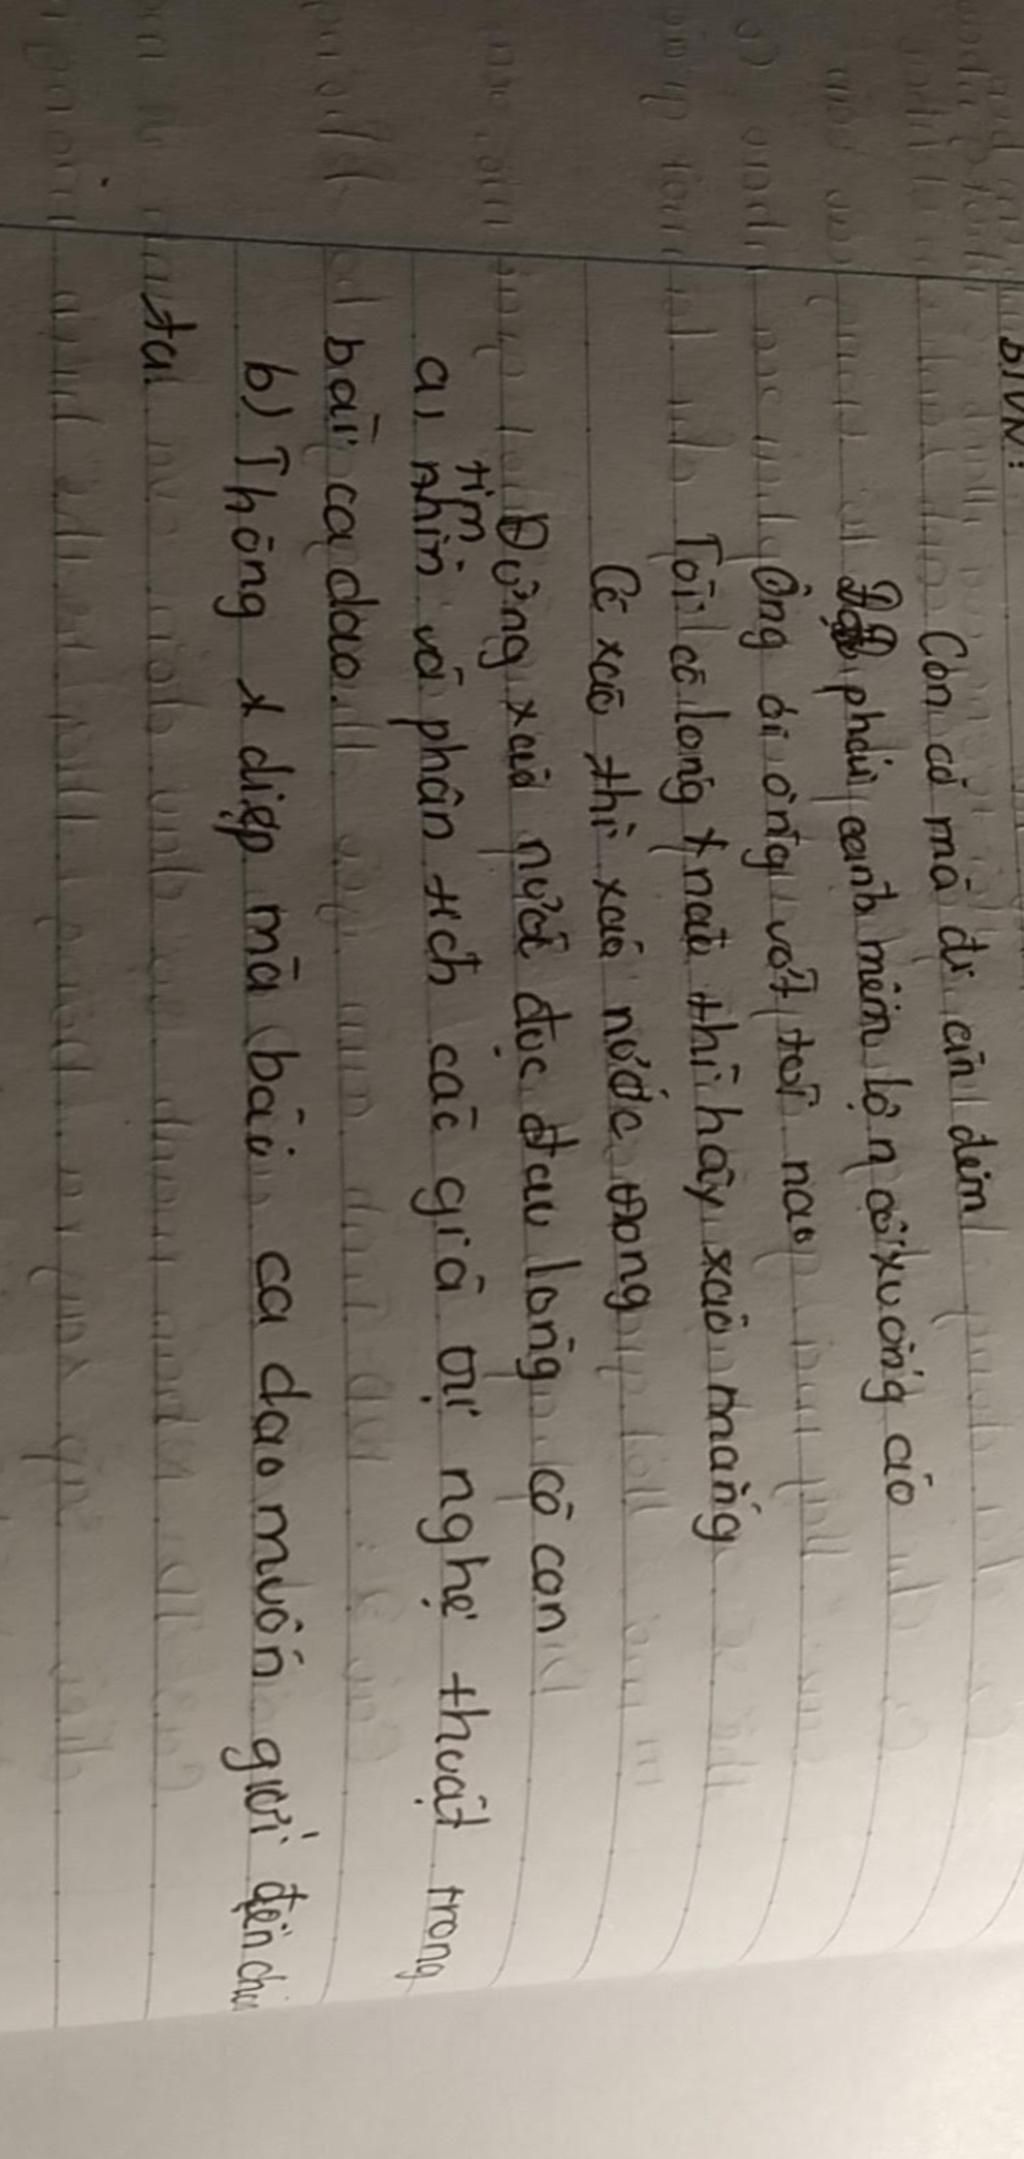 BTVN:
Con cò mà đi ăn đêm
Đậu phải cành mềm lộn cổ xuống ao
Ông ơi ông vớt tôi nao
Tôi có lòng nào thì hãy xáo măng
Có xáo thì xáo nước trong
Đừng xáo nước đục đau lòng cò con
a, tìm và phân tích các giá trị nghệ thuật trong
bài ca dao.
b) Thông điệp mà bài ca dao muốn gửi đến
ta